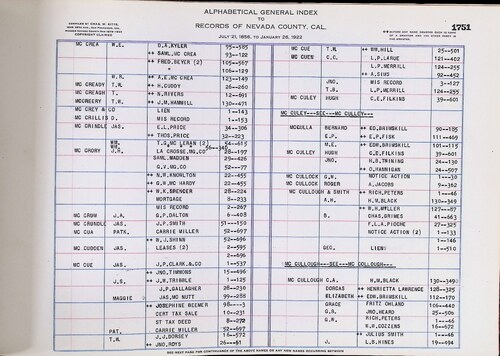 ALPHABETICAL GENERAL INDEX
TO
RECORDS OF NEVADA COUNTY, CAL.
JULY 21, 1856, TO JANUARY 28, 1922
1751
MC CREA W.E. D.A. RYLER 95--505
++ SAML. MC CREA 93--122
++ FRED. BEYER (2) 105--567
++ 106--129
W.R. ++ A.E. MC CREA 123--149
MC CREADY T.W. ++ H. CUDDY 26--260
MC CREAGH T. ++ N. RIVERS 12--691
MC CREERY T.W. ++ J.M. HAMMILL 130--471
MC CREY & CO LIEN 1--143
MC CRILLIS D. MIS RECORD 1--153
MC CRINDLE JAS. E.L. PRICE 34--306
++ THOS. PRICE 32--223
T.G. MC LERAN (2) 54--615
MC CRORY J.R. LA CROSSE, MG, CO 28--197
SAML. MADDEN 29--426
G.V. MG. CO 52--77
++ N.W. KNOWLTON 22--455
++ O.W. MC HARDY 22--455
++ W.K. SPENCER 28--224
MORTGAGE 8--233
MIS RECORD 2--267
MC CRUM J.A. G.P. DALTON 6--408
MC CRUM JAS. J.P. SMITH 51--150
MC CUA PATK. CARRIE MILLER 52--697
++ W.J. SHINN 52--696
MC CUDDEN JAS. LEASES (2) 2--595
2--696
MC CUE JAS. J.P. CLARK, & CO 1--537
++ JNO. TIMMONS 15--496
J.S. ++ J.W. TRIMBLE 1--125
J.P. GALLAGHER 28--230
MAGGIE JAS. MC NUTT 99--288
++ JOSEPHINE BEEMER 98---3
CERT TAX SALE 10--231
ST TAX DEED 8--272
PAT. CARRIE MILLER 52--697
T.W. J.J. DORSEY 16--572
++ JNO. ROYS 26---81
MC CUE T.W. ++ WM. HILL 25--501
MC CUEN C.C. L.P. LARUE 121--402
L.P. MERRILL 124--255
++ A. SIUS 92--452
JNO. MIS RECORD 3--127
T.B. L.P. MERRILL 124--255
MC CULEY HUGH C.E. FILKINS 39--601
MC CULEY---SEE---MC CULLEY---
MCCULLA BERNARD ++ ED. BRIMSKILL 90--185
E.P. ++ E.P. FISK 111--469
M.E. ++ EDW. BRIMSKILL 101--115
MC CULLEY HUGH G.E. FILKINS 39--601
JNO. ++ H.B. TWINING 24--138
++ O. HANNIGAN 24--507
MC CULLOCK G.W. NOTICE ACTION 1---30
MC CULLOCK ROGER A. JACOBS 9--362
MC CULLOUGH & SMITH ++ RICH, PETERS 1---46
A.H. H.M. BLACK 130--349
++ W.H. MYLLER 127---87
B. CHAS. GRIMES 41--663
F.L.A. PIOCHE 27--325
NOTICE ACTION (2) 1--133
1--146
GEO. LIENS 1--510
MC CULLOUGH---SEE---MC COLLOUGH---
MC CULLOUGH C.A. H.M. BLACK 130--349
DORCAS ++ HENRIETTA LAWRENCE 128--325
ELIZABETH ++ EDW. BRIMSKILL 112--170
GRACE FRITZ OHLAND 106--440
G.B. JNO. HEARD 25--506
G.W. RICH, PETERS 1---46
W.H. COZZENS 16--672
++ JULIUS SMITH 1---46
J. L.B. HINES 19--494
SEE NEXT PAGE FOR CONTINUANCE OF THE ABOVE NAMES OR ANY NEW NAMES OCCURRING BETWEEN